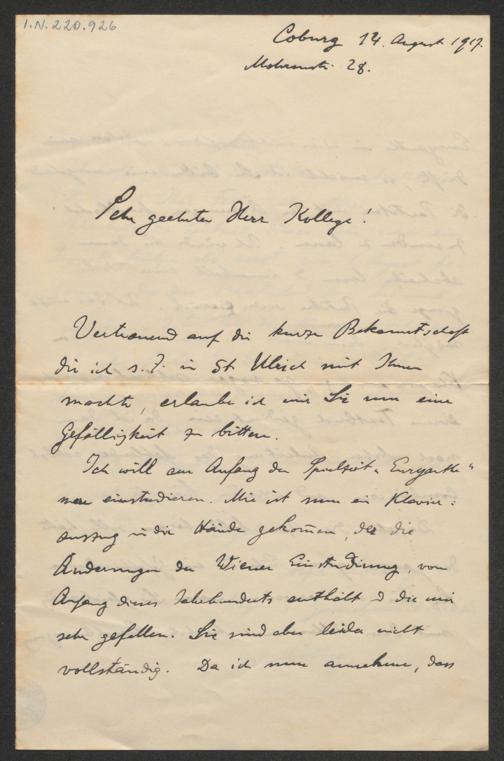 I.N. 220.926
Coburg 14. August 1917.
Mohrenstr. 28.
Sehr geehrter Herr Kollege!
Vertrauend auf die kurze Bekanntschaft
die ich s. Z. in St Ulrich mit Ihnen
machte, erlaube ich mir Sie um eine
Gefälligkeit zu bitten.
Ich will am Anfang der Spielzeit „Euryanthe"
neu einstudieren. Mir ist nun ein Klavier:
auszug in die Hände gekommen, der die
Änderungen der Wiener Einstudierung, vom
Anfang dieses Jahrhunderts enthält & die mir
sehr gefallen. Sie sind aber leider nicht
vollständig. Da ich nun annehme, dass